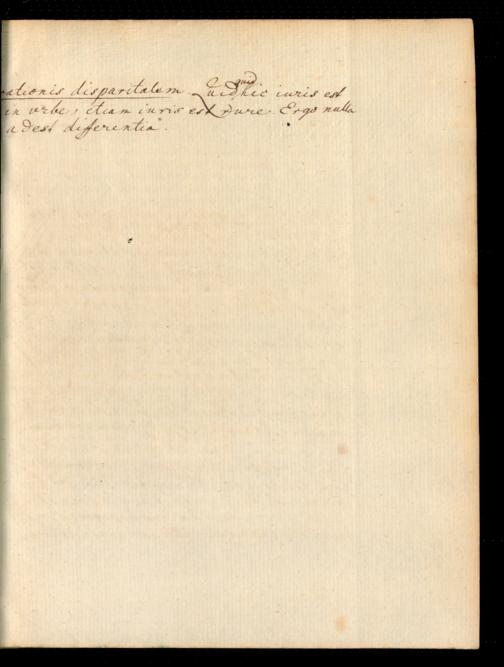 quid
rationis disparitatem Quid hic iuris est
in vrbe, etiam iuris est rure. Ergo nulla
adest differentia.